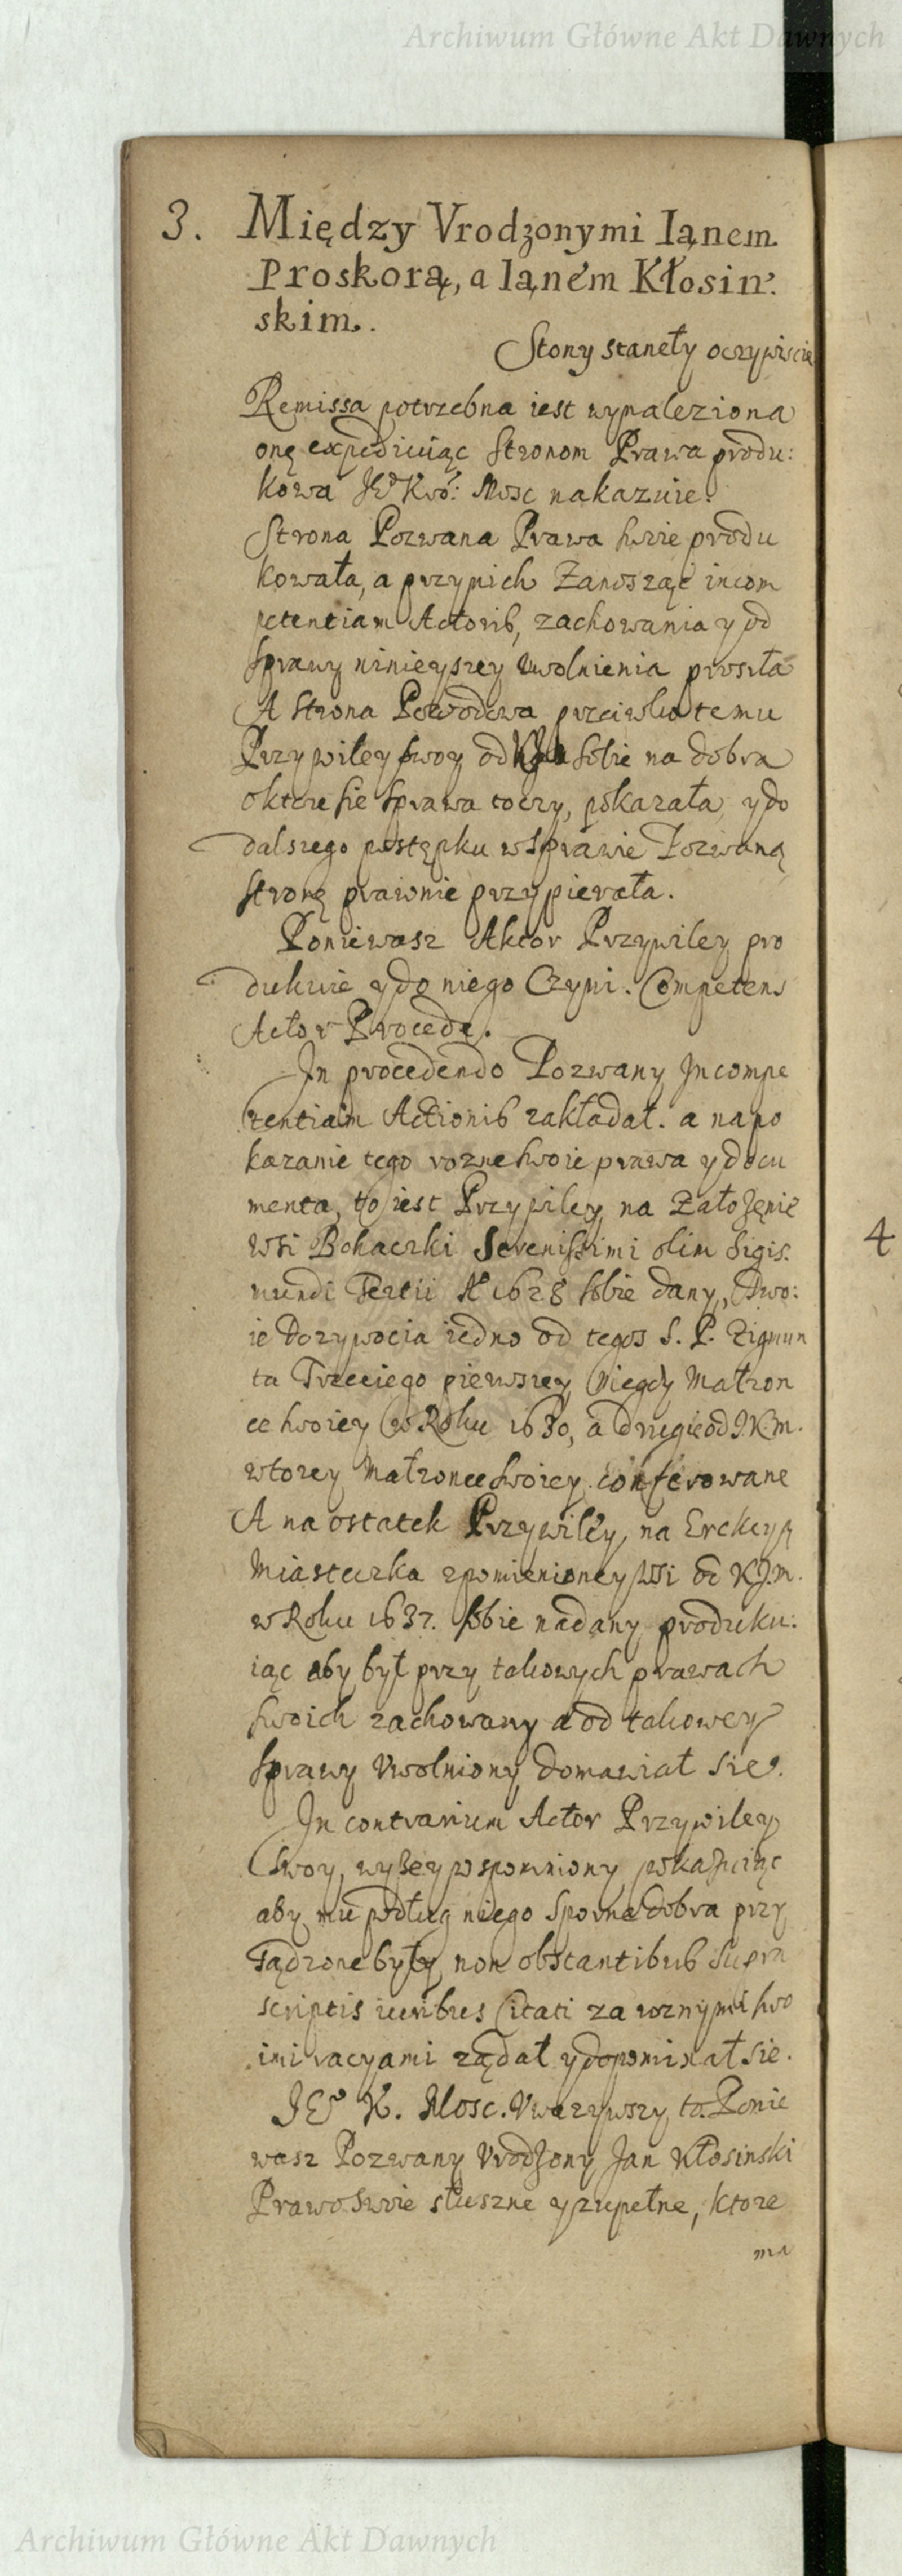 Archiwum Główne Akt Dawnych
3. Między Vrodzonymi Ianem
Proskorą, a Ianem Kłosin:
skim.
Strony staneły oczywiscie
Remissa potrzebna iest wynaleziona
onę expediuiąc Stronom Prawa produ:
kowa JE° Kró: Mosc nakazuie.
Strona Pozwana Prawa swoie produ
kowała, a przynich Zanosząc incom
petentiam Actoris, zachowania y od
sprawy ninieyszey uwolnienia prosiła
A Strona Powodowa przeciwko temu
Przywiley swoy od sobie na dobra
oktore sie sprawa toczy, pokazała y do
dalszego postępku wsprawie Pozwaną
stronę prawnie przypierała.
Poniewasz Aktor Przywiley pro
dukuie y do niego Czyni. Competens
Actor Procedat.
In procedendo Pozwany Incompe
tentiam Actionis zakładał. a na po
kazanie tego rozne swoie prawa y docu
menta, to iest Przywiley na Załozęnie
Wsi Bohaczki Serenissimi olim Sigis
mundi Tertii A° 1628 sobie dany, Dwo:
ie Dozywocia iedno od tegoz S. P. Zigmun
ta Trzeciego pierwszey niegdy Małzon
ce swoiey w Roku 1630, a drugie od I.K.M.
wtorey Małzonce swoiey conferowane
A na ostatek Przywiley, na Erekcyą
Miasteczka zpomienioney Wsi od K.J.M.
w Roku 1637. sobie nadany produku:
iąc aby był przy takowych prawach
swoich zachowany a od takowey
sprawy Vwolniony domawiał sie.
In contrarium Actor Przywiley
swoy, wyszey wspomniony, pokazuiąc
aby mu podług niego sporne dobra przy
sądzone były, non obstantibus supra
scriptis iuribus Citati za roznymi swo
imi racyami ządał y dopominał sie.
JE° K. Mosc. Vwazywszy to. Ponie
wasz Pozwany Vrodzony Jan Kłosinski
Prawo swoie słuszne y zupełne, ktore
ma
4
Archiwum Główne Akt Dawnych